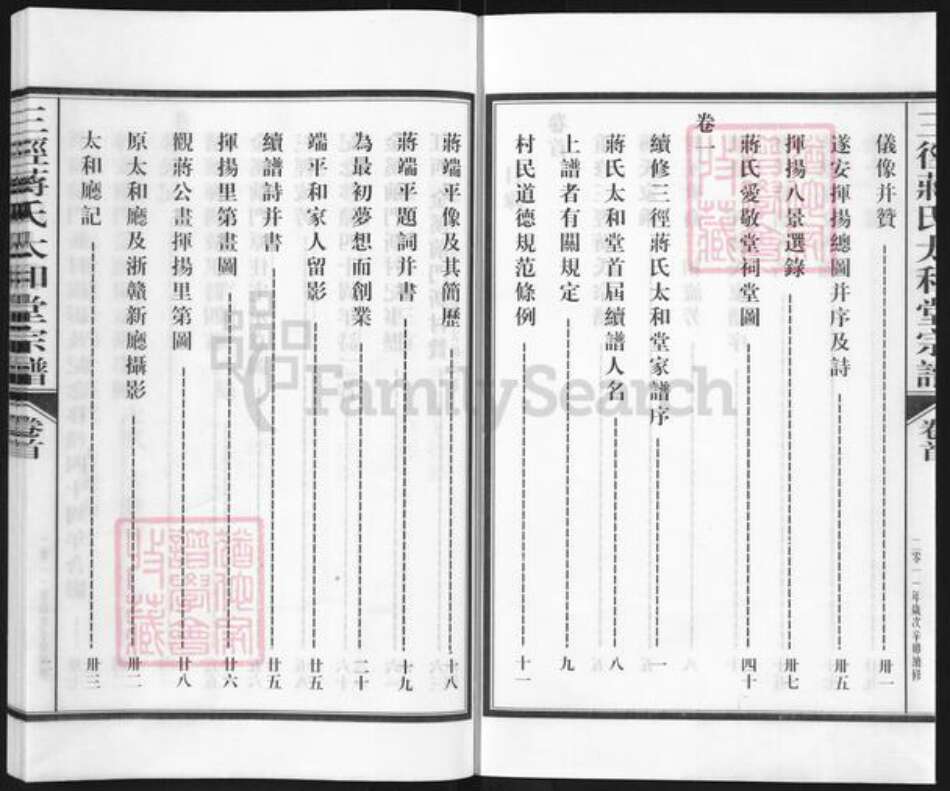 三徑蔣氏太和堂宗譜
卷首
二零一一年歲次辛卯續修
儀像并贊 卅一
遂安揮揚總圖并序及詩 卅五
揮揚八景選錄 卅七
蔣氏愛敬堂祠堂圖 四十
卷一
續修三徑蔣氏太和堂家譜序 一
蔣氏太和堂首屆續譜人名 八
上譜者有關規定 九
村民道德規范條例 十一
蔣端平像及其簡歷 十八
蔣端平題詞并書 十九
為最初夢想而創業 二十
端平和家人留影 廿五
續譜詩并書 廿五
揮揚里第畫圖 廿六
觀蔣公畫揮揚里第圖 廿八
原太和廳及浙贛新廳攝影 卅二
太和廳記 卅三
三徑蔣氏太和堂宗譜
卷首
FamilySearch